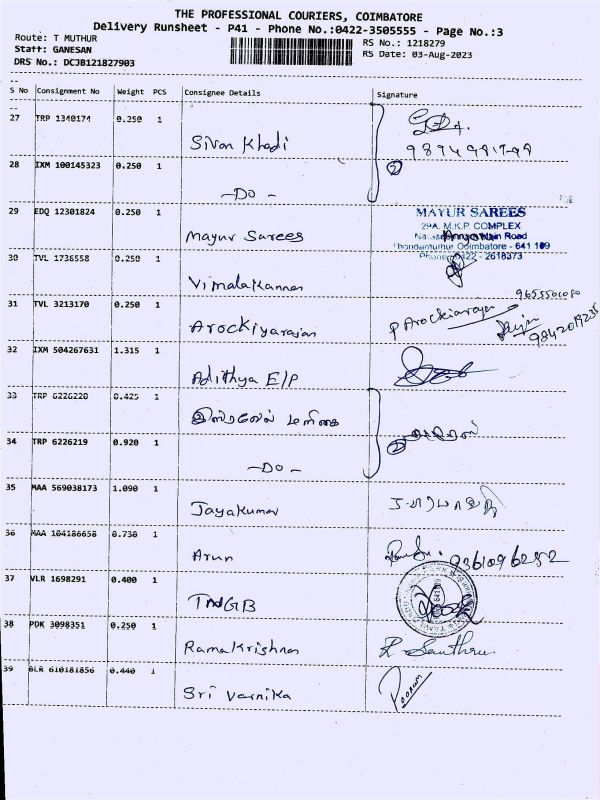 THE PROFESSIONAL COURIERS, COIMBATORE
Delivery Runsheet - P41 - Phone No.:0422-3505555 - Page No.:3
Route: T MUTHUR
RS No.: 1218279
Staff: GANESAN
RS Date: 03-Aug-2023
DRS No.: DCJB121827903
S No Consignment No Weight PCS Consignee Details Signature
27 TRP 1340174 0.250 1
Sivan Khadi
28 IXM 100145323 0.250 1
2
-Do-
29 EDQ 12301824 0.250 1
MAYUR SAREES
29A, M.K.P. COMPLEX
Main Road
Thondamuthur Coimbatore - 641 109
Phone: 0422 - 2618373
Mayur Sarees
30 TVL 1736558 0.250 1
Vimalakannan
31 TVL 3213170 0.250 1
Arockiyarajan
P Arockiaraja
9842019235
32 IXM 504267631 1.315 1
Adithya E/P
33 TRP 6226220 0.425 1
இஸ்ரவேல் மளிகை
34 TRP 6226219 0.920 1
2
-Do-
35 MAA 569038173 1.090 1
Jayakumar
36 MAA 104186658 0.730 1
Arun
9361096252
37 VLR 1698291 0.400 1
TNGB
38 PDK 3098351 0.250 1
Ramakrishnan
39 BLR 610181856 0.440 1
Sri Varnika